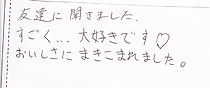 友達に聞きました.
すごく...大好きです♡
おいしさに まきこまれました。